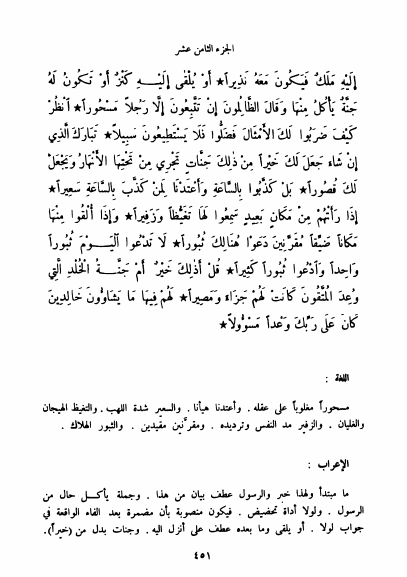 الجزء الثامن عشر
إِلَيْهِ مَلَكٌ فَيَكُونَ مَعَهُ نَذِيراً * أَوْ يُلْقَى إِلَيْهِ كَنْزٌ أَوْ تَكُونُ لَهُ
جَنَّةٌ يَأْكُلُ مِنْهَا وَقَالَ الظَّالِمُونَ إِنْ تَتَّبِعُونَ إِلَّا رَجُلاً مَسْحُوراً * انْظُرْ
كَيْفَ ضَرَبُوا لَكَ الْأَمْثَالَ فَضَلُّوا فَلَا يَسْتَطِيعُونَ سَبِيلاً * تَبَارَكَ الَّذِي
إِنْ شَاءَ جَعَلَ لَكَ خَيْراً مِنْ ذَلِكَ جَنَّاتٍ تَجْرِي مِنْ تَحْتِهَا الْأَنْهَارُ وَيَجْعَلْ
لَكَ قُصُوراً * بَلْ كَذَّبُوا بِالسَّاعَةِ وَأَعْتَدْنَا لِمَنْ كَذَّبَ بِالسَّاعَةِ سَعِيراً *
إِذَا رَأَتْهُمْ مِنْ مَكَانٍ بَعِيدٍ سَمِعُوا لَهَا تَغَيُّظاً وَزَفِيراً * وَإِذَا أُلْقُوا مِنْهَا
مَكَاناً ضَيِّقاً مُقَرَّنِينَ دَعَوْا هُنَالِكَ ثُبُوراً * لَا تَدْعُوا الْيَوْمَ ثُبُوراً
وَاحِداً وَادْعُوا ثُبُوراً كَثِيراً * قُلْ أَذَلِكَ خَيْرٌ أَمْ جَنَّةُ الْخُلْدِ الَّتِي
وُعِدَ الْمُتَّقُونَ كَانَتْ لَهُمْ جَزَاءً وَمَصِيراً * لَهُمْ فِيهَا مَا يَشَاؤُونَ خَالِدِينَ
كَانَ عَلَى رَبِّكَ وَعْداً مَسْؤُولاً *
اللغة :
مسحوراً مغلوباً على عقله . وأعتدنا هيأنا . والسعير شدة اللهب . والتغيظ الهيجان
والغليان . والزفير مد النفس وترديده . ومقرَّنين مقيدين . والثبور الهلاك .
الإعراب :
ما مبتدأ ولهذا خبر والرسول عطف بيان من هذا . وجملة يأكل حال من
الرسول . ولولا أداة تحضيض . فيكون منصوبة بأن مضمرة بعد الفاء الواقعة في
جواب لولا . أو يلقى وما بعده عطف على أنزل اليه . وجنات بدل من (خيراً) .
٤٥١